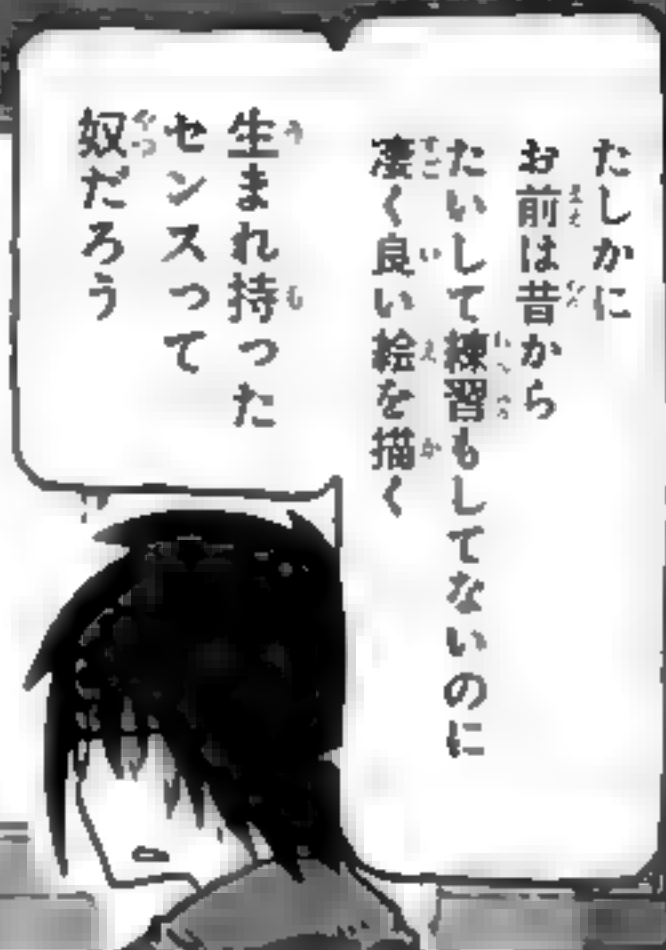 たしかに
お前は昔から
たいして練習もしてないのに
凄く良い絵を描く
生まれ持った
センスって
奴だろう